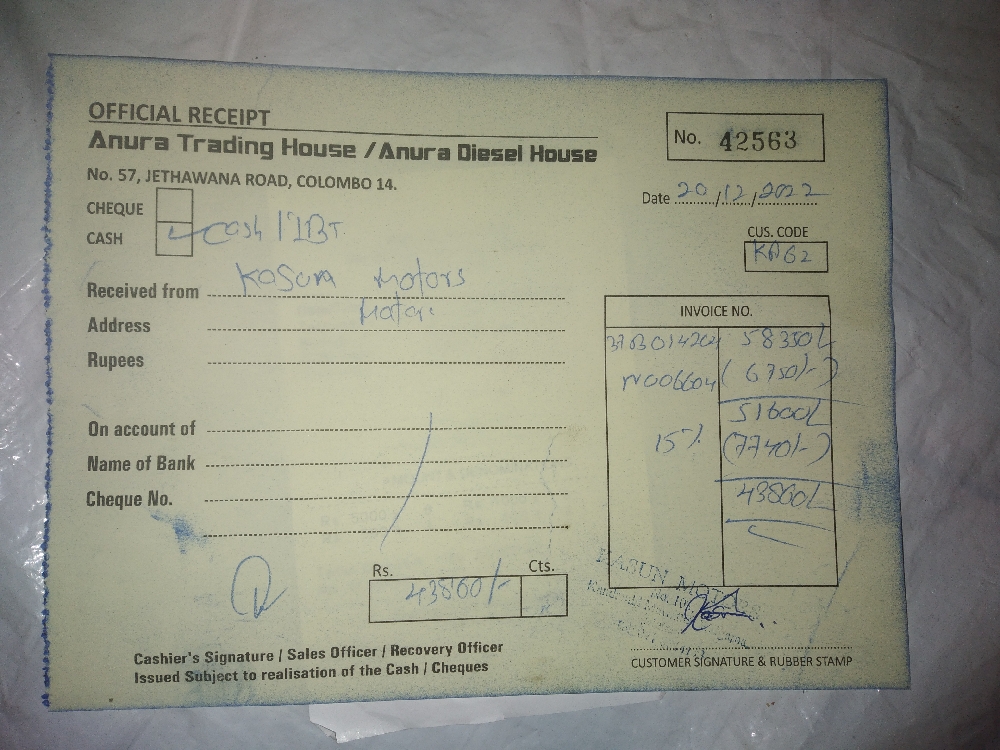 OFFICIAL RECEIPT
Anura Trading House / Anura Diesel House
No. 42563
No. 57, JETHAWANA ROAD, COLOMBO 14.
Date 20/12/2022
CHEQUE
CASH Cash / IBT.
CUS. CODE
KA62
Received from Kasun Motors
Address
Rupees
INVOICE NO.
58350/-
N006604 (6750/-)
51600/-
15% (7740/-)
43860/-
On account of
Name of Bank
Cheque No.
Rs. Cts.
43860/-
KASUN MOTORS
Cashier's Signature / Sales Officer / Recovery Officer
Issued Subject to realisation of the Cash / Cheques
CUSTOMER SIGNATURE & RUBBER STAMP